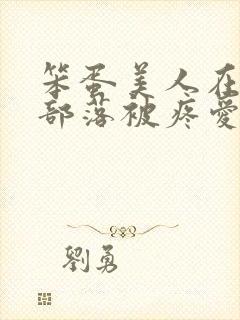 笨蛋美人在
部落被疼愛
劉勇